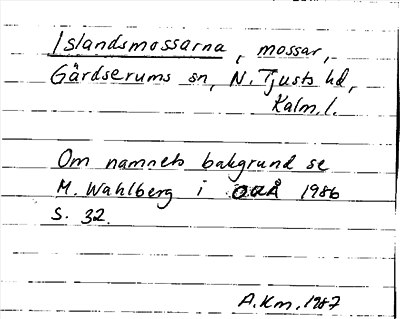 Islandsmossarna, mossar,
Gärdserums sn, N. Tjusts hd,
Kalm. l.
Om namnets bakgrund se
M. Wahlberg i OUÅ 1986
s. 32.
A.Km. 1987